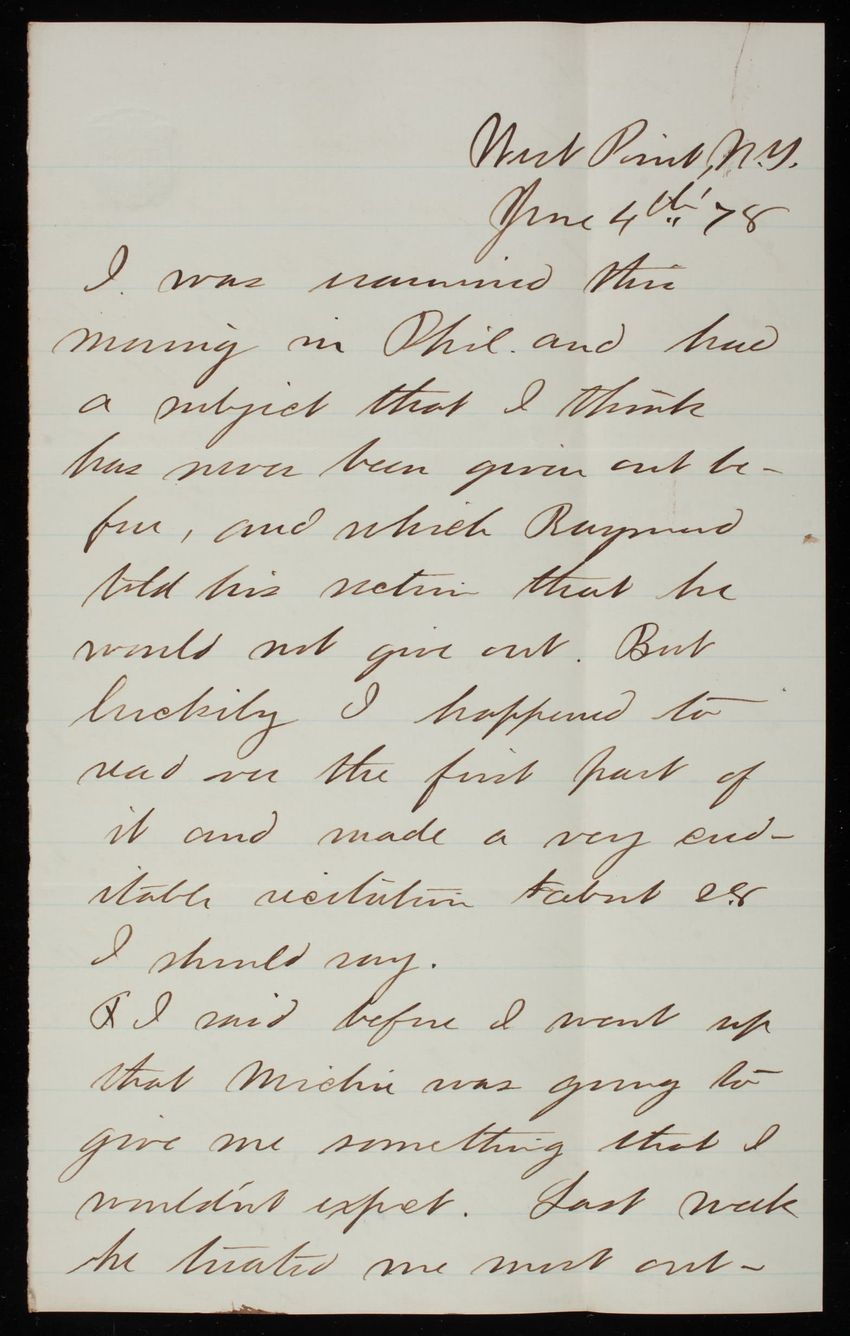 West Point, N.Y.
June 4th '78
I was examined this
morning in Phil. and had
a subject that I think
has never been given out be-
fore, and which Raymond
told his section that he
would not give out. But
luckily I happened to
read over the first part of
it and made a very cred-
itable recitation about 2.8
I should say.
I said before I went up
that Michie was going to
give me something that I
wouldn't expect. Last week
he treated me most out-